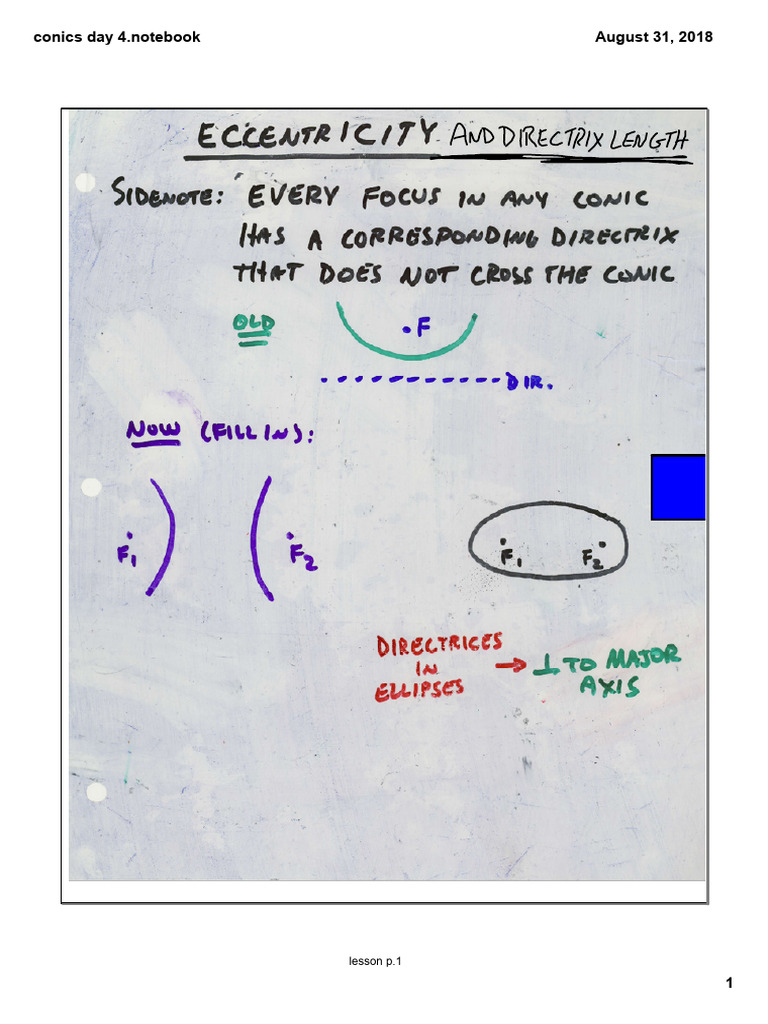 conics day 4.notebook
August 31, 2018
ECCENTRICITY AND DIRECTRIX LENGTH
SIDENOTE: EVERY FOCUS IN ANY CONIC
HAS A CORRESPONDING DIRECTRIX
THAT DOES NOT CROSS THE CONIC
OLD
F
DIR.
NOW (FILL IN):
F1
F2
F1
F2
DIRECTRICES
IN
ELLIPSES
→ ⊥ TO MAJOR
AXIS
lesson p.1
1